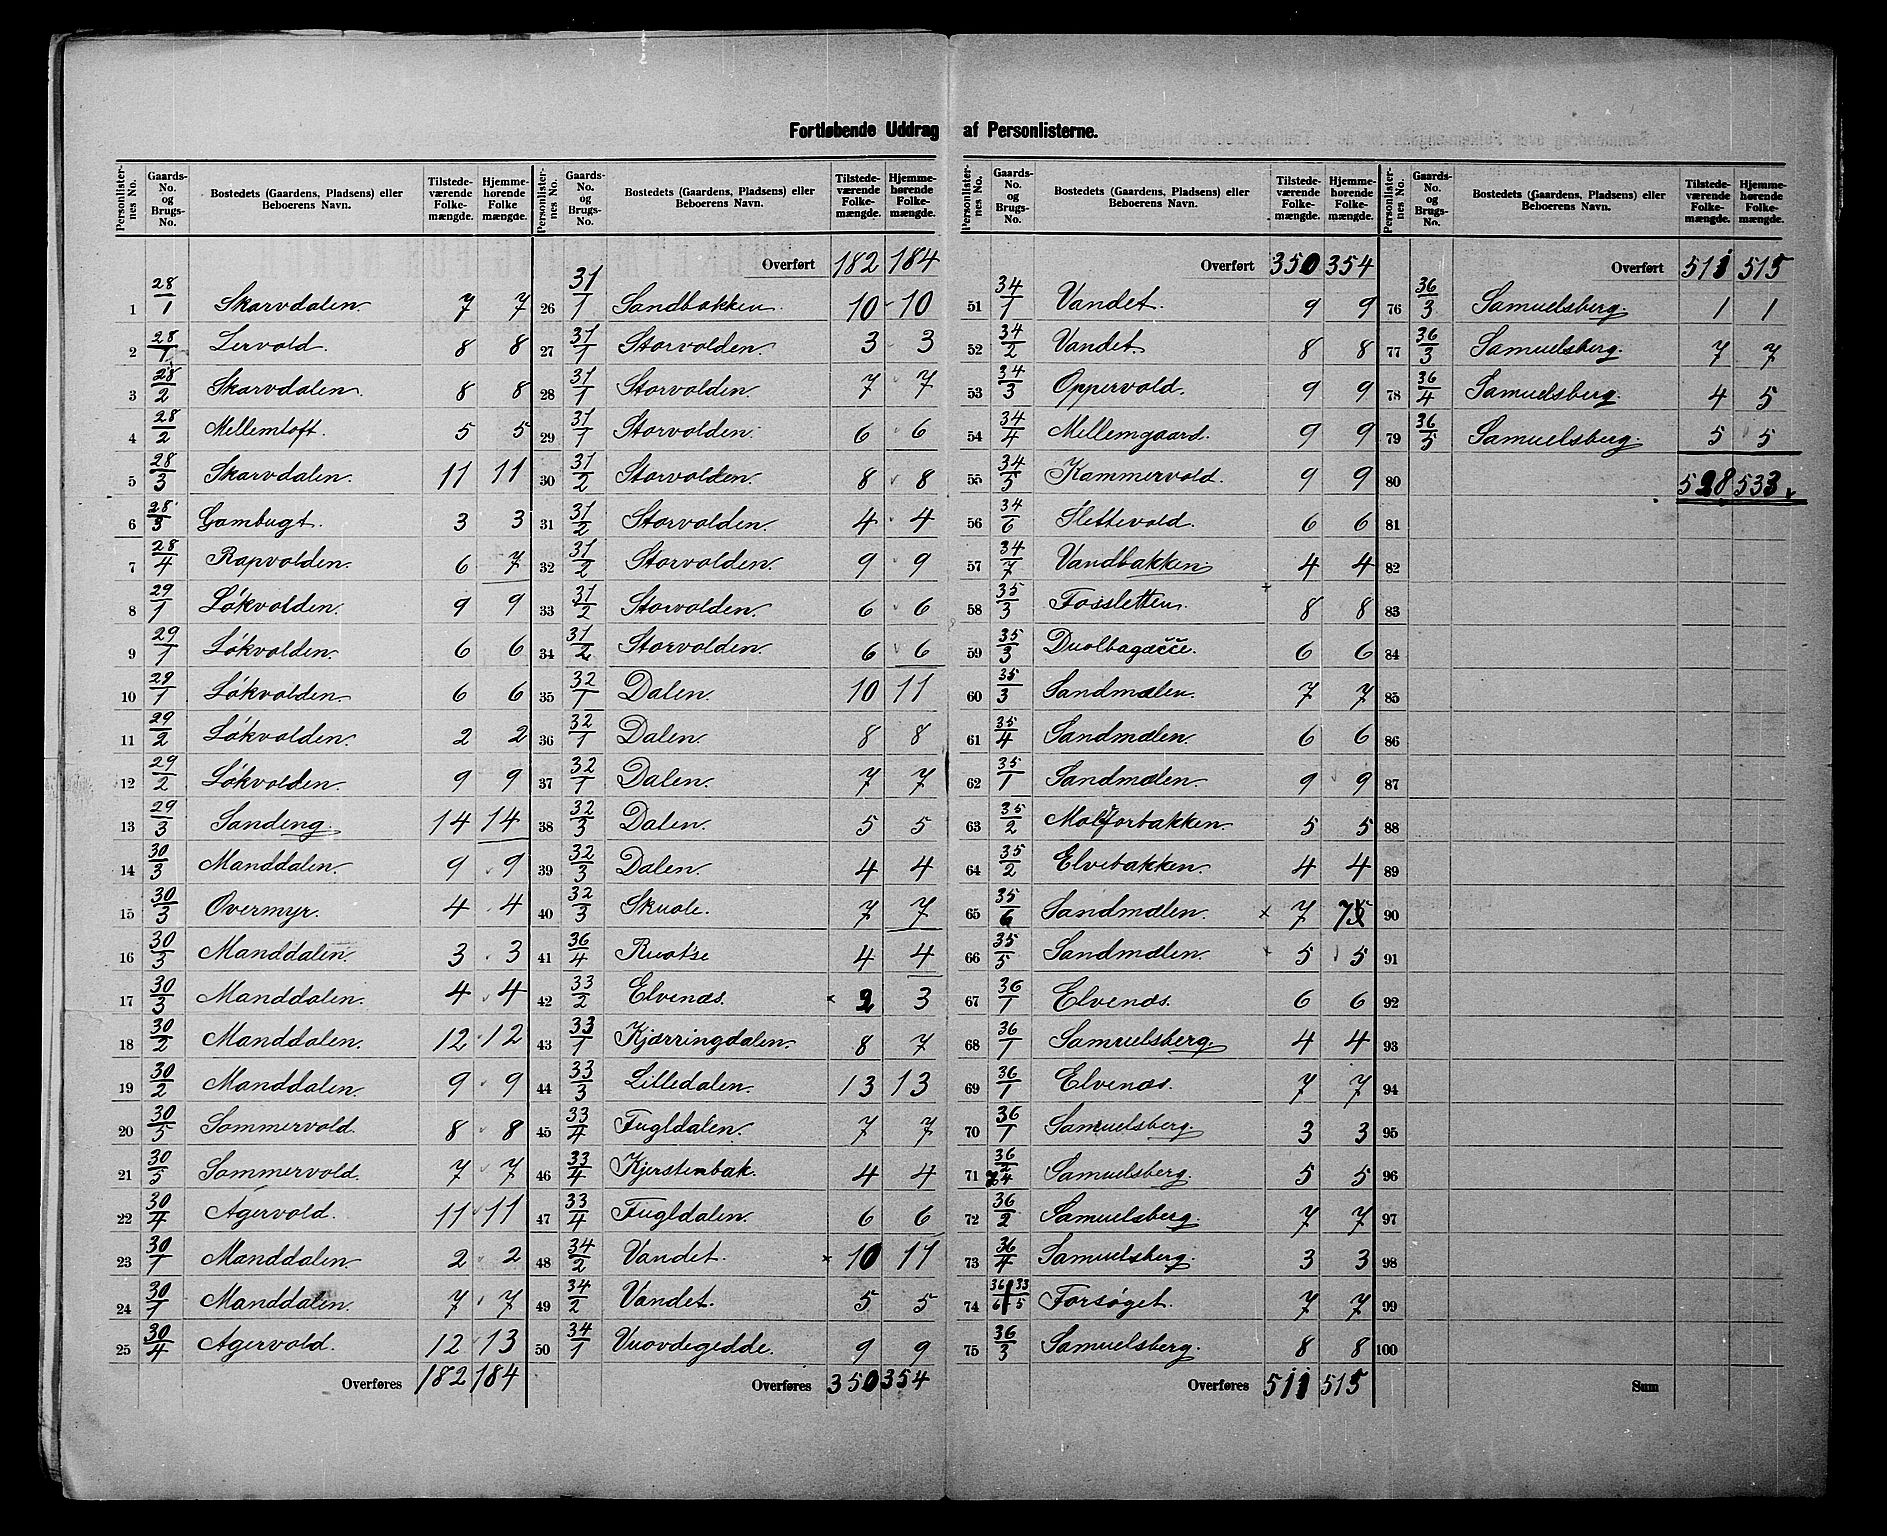 Fortløbende Uddrag af Personlisterne.
Personlister-nes No. Gaards-No. og Brugs-No. Bostedets (Gaardens, Pladsens) eller Beboerens Navn. Tilstede-værende Folke-mængde. Hjemme-hørende Folke mængde.
1 28/1 Skarvdalen 7 7
2 28/1 Lervold. 8 8
3 28/2 Skarvdalen. 8 8
4 28/2 Mellemtoft. 5 5
5 28/3 Skarvdalen. 11 11
6 28/3 Gambugt. 3 3
7 28/4 Rapvolden. 6 7
8 29/1 Løkvolden. 9 9
9 29/1 Løkvolden. 6 6
10 29/1 Løkvolden 6 6
11 29/2 Løkvolden. 2 2
12 29/2 Løkvolden. 9 9
13 29/3 Sandeng. 14 14
14 30/3 Manddalen. 9 9
15 30/3 Overmyr. 4 4
16 30/3 Manddalen. 3 3
17 30/3 Manddalen. 4 4
18 30/2 Manddalen. 12 12
19 30/2 Manddalen. 9 9
20 30/5 Sommervold. 8 8
21 30/5 Sommervold. 7 7
22 30/4 Agervold. 11 11
23 30/1 Manddalen. 2 2
24 30/1 Manddalen. 7 7
25 30/4 Agervold. 12 13
Overføres 182 184
Personlister-nes No. Gaards-No. og Brugs-No. Bostedets (Gaardens, Pladsens) eller Beboerens Navn. Tilstede-værende Folke-mængde. Hjemme-hørende Folke-mængde.
Overført 182 184
26 31/1 Sandbakken 10 10
27 31/1 Storvolden. 3 3
28 31/1 Storvolden. 7 7
29 31/1 Storvolden. 6 6
30 31/2 Storvolden. 8 8
31 31/2 Storvolden. 4 4
32 31/2 Storvolden. 9 9
33 31/2 Storvolden. 6 6
34 31/2 Storvolden. 6 6
35 32/1 Dalen. 10 11
36 32/1 Dalen. 8 8
37 32/1 Dalen. 7 7
38 32/3 Dalen. 5 5
39 32/3 Dalen. 4 4
40 32/3 Skuole. 7 7
41 36/4 Ruotse 4 4
42 33/2 Elvenæs. × 2 3
43 33/1 Kjærringdalen. 8 7
44 33/3 Lilledalen. 13 13
45 33/4 Fugldalen. 7 7
46 33/4 Kjerstenbak. 4 4
47 33/4 Fugldalen. 6 6
48 34/2 Vandet. × 10 11
49 34/2 Vandet. 5 5
50 34/1 Vuovdegedde. 9 9
Overføres 350 354
Personlister-nes No. Gaards-No. og Brugs-No. Bostedets (Gaardens, Pladsens) eller Beboerens Navn. Tilstede-værende Folke-mængde. Hjemme-hørende Folke-mængde.
Overført 350 354
51 34/1 Vandet. 9 9
52 34/2 Vandet. 8 8
53 34/3 Oppervold. 9 9
54 34/4 Mellemgaard. 9 9
55 34/5 Kammervold. 9 9
56 34/6 Slettevold. 6 6
57 34/7 Vandbakken. 4 4
58 35/3 Fossletten. 8 8
59 35/3 Duolbagæčče. 6 6
60 35/3 Sandmælen. 7 7
61 35/4 Sandmælen. 6 6
62 35/1 Sandmælen. 9 9
63 35/2 5 5
64 35/2 Elvebakken. 4 4
65 35/6 Sandmælen. × 7 7
66 35/5 Sandmælen. 5 5
67 36/1 Elvenæs. 6 6
68 36/1 Samuelsberg. 4 4
69 36/1 Elvenæs. 7 7
70 36/1 Samuelsberg. 3 3
71 36/2 Samuelsberg. 5 5
72 36/2 Samuelsberg. 7 7
73 36/4 Samuelsberg. 3 3
74 36/6 33/5 Forsøget. 7 7
75 36/3 Samuelsberg. 8 8
Overføres 511 515
Personlister-nes No. Gaards-No. og Brugs-No. Bostedets (Gaardens, Pladsens) eller Beboerens Navn. Tilstede-værende Folke-mængde. Hjemme-hørende Folke-mængde.
Overført 511 515
76 36/3 Samuelsberg. 1 1
77 36/3 Samuelsberg. 7 7
78 36/4 Samuelsberg. 4 5
79 36/5 Samuelsberg. 5 5
80 528 533
81
82
83
84
85
86
87
88
89
90
91
92
93
94
95
96
97
98
99
100
Sum